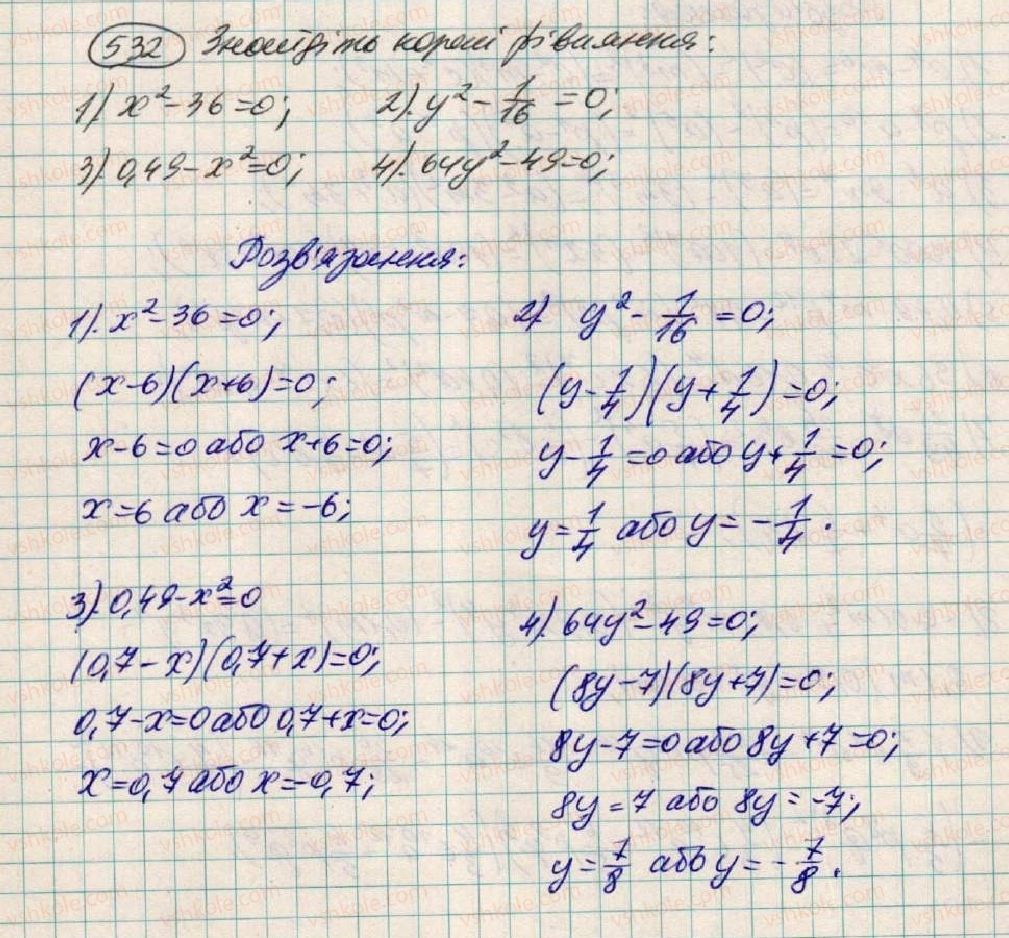 532 Знайдіть корені рівняння:
1). x² - 36 = 0; 2). y² - 1/16 = 0;
3). 0,49 - x² = 0; 4). 64y² - 49 = 0;
Розв'язання:
1). x² - 36 = 0;
(x - 6)(x + 6) = 0;
x - 6 = 0 або x + 6 = 0;
x = 6 або x = -6;
2). y² - 1/16 = 0;
(y - 1/4)(y + 1/4) = 0;
y - 1/4 = 0 або y + 1/4 = 0;
y = 1/4 або y = -1/4.
3). 0,49 - x² = 0
(0,7 - x)(0,7 + x) = 0;
0,7 - x = 0 або 0,7 + x = 0;
x = 0,7 або x = -0,7;
4). 64y² - 49 = 0;
(8y - 7)(8y + 7) = 0;
8y - 7 = 0 або 8y + 7 = 0;
8y = 7 або 8y = -7;
y = 7/8 або y = -7/8.
vshkole.com